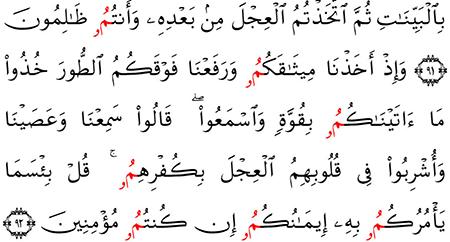 بِالْبَيِّنَـٰتِ ثُمَّ اَتَّخَذتُّمُ الْعِجْلَ مِنۢ بَعْدِهِۦ وَأَنتُمُۥ ظَـٰلِمُونَ
﴿٩١﴾ وَإِذْ أَخَذْنَا مِيثَـٰقَكُمُۥ وَرَفَعْنَا فَوْقَكُمُ الطُّورَ خُذُواْ
مَا ءَاتَيْنَـٰكُمُۥ بِقُوَّةٍ وَاَسْمَعُواْ ۖ قَالُواْ سَمِعْنَا وَعَصَيْنَا
وَأُشْرِبُواْ فِى قُلُوبِهِمُ الْعِجْلَ بِكُفْرِهِمُۥ ۚ قُلْ بِئْسَمَا
يَأْمُرُكُمُۥ بِهِۦ إِيمَـٰنُكُمُۥ إِن كُنتُمُۥ مُؤْمِنِينَ ﴿٩٢﴾